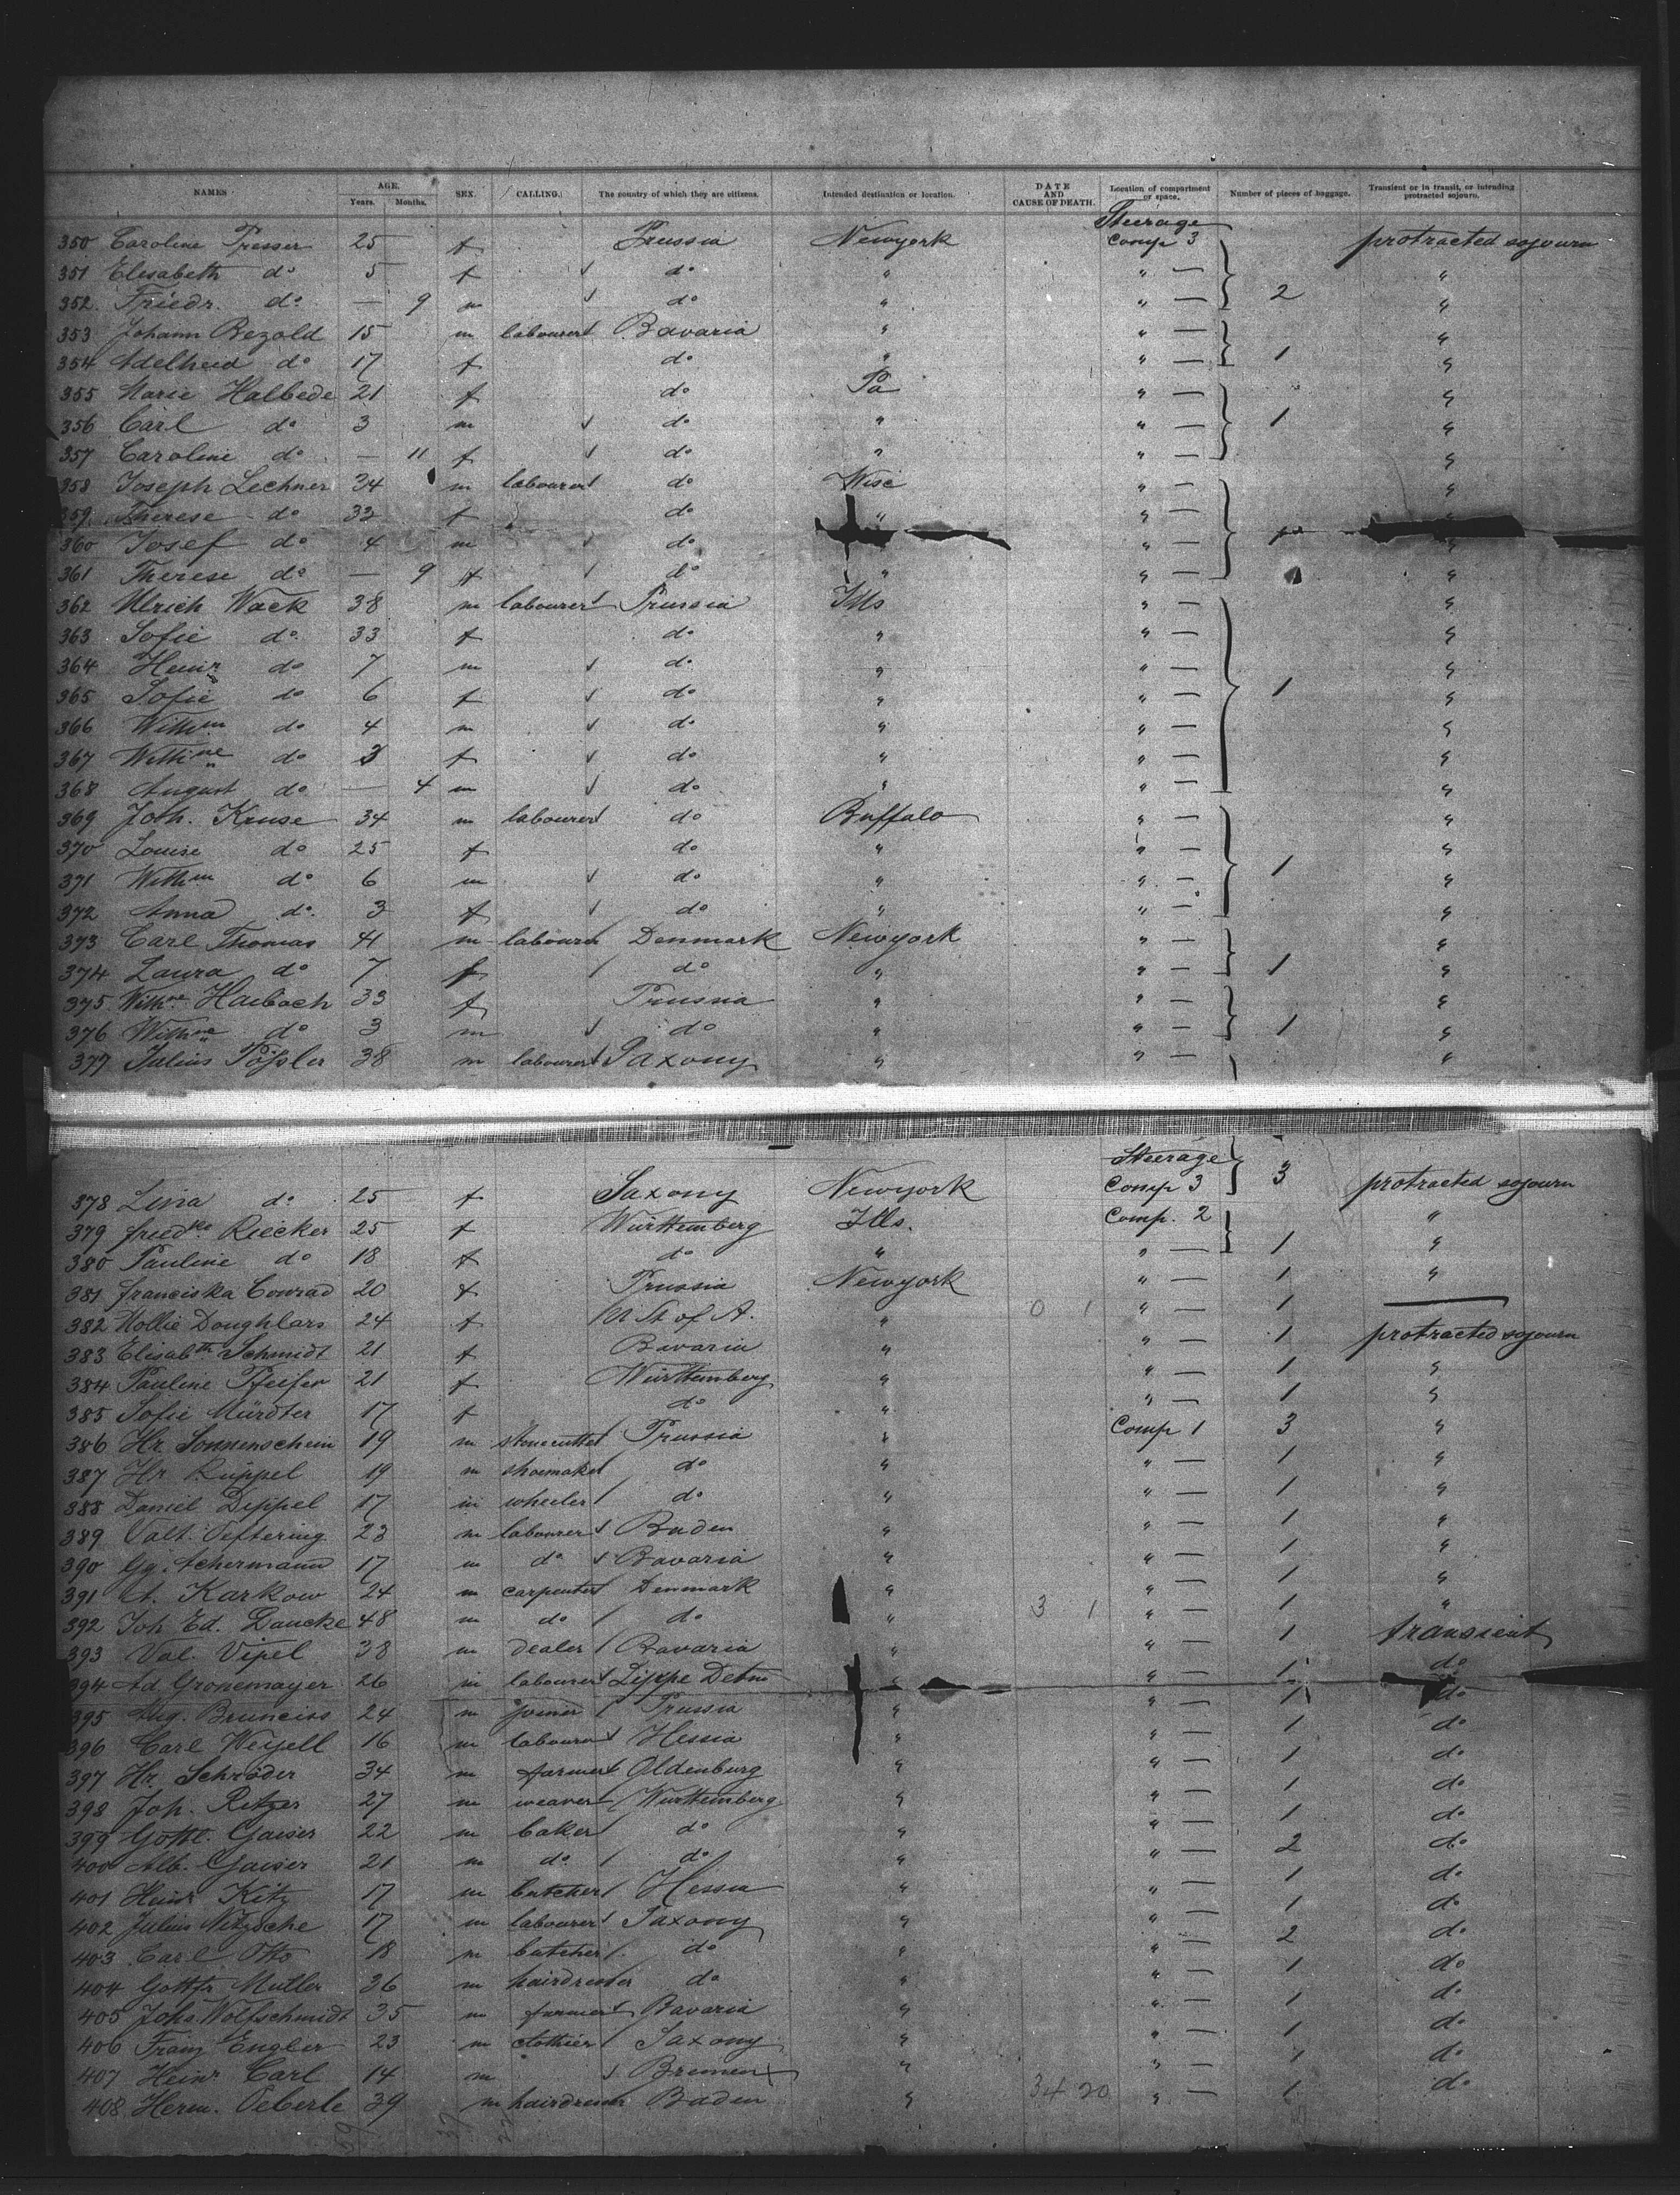 NAMES AGE. Years. Months. SEX. CALLING. The country of which they are citizens. Intended destination or location. DATE AND CAUSE OF DEATH. Location of compartment or space. Number of pieces of baggage. Transient or in transit, or intending protracted sojourn.
350 Caroline Presser 25 f Prussia Newyork Steerage Comp 3 protracted sojourn
351 Elisabeth do 5 f do " " — "
352 Friedr. do — 9 m do " " — 2 "
353 Johann Bezold 15 m labourer Bavaria " " — "
354 Adelheid do 17 f do " " — 1 "
355 Marie Halbede 21 f do Pa " — "
356 Carl do 3 m do " " — 1 "
357 Caroline do — 11 f do " " — "
358 Joseph Lechner 34 m labourer do Wisc " — "
359 Therese do 33 f do " " —
360 Josef do 4 m do " —
361 Therese do — 9 f do " " — "
362 Ulrich Wack 38 m labourer Prussia Ills " — "
363 Sofie do 33 f do " " — "
364 Heinr do 7 m do " " — "
365 Sofie do 6 f do " " — 1 "
366 Wilhm do 4 m do " " — "
367 Wilhne do 3 f do " " — "
368 August do — 4 m do " " — "
369 Joh. Kruse 34 m labourer do Buffalo " — "
370 Louise do 25 f do " " — "
371 Wilhm do 6 m do " " — 1 "
372 Anna do 3 f do " " — "
373 Carl Thomas 41 m labourer Denmark Newyork " — "
374 Laura do 7 f do " " — 1 "
375 Wilhne Haibach 33 f Prussia " " — "
376 Wilhne do 3 m do " " — 1 "
377 Julius Pößler 38 m labourer Saxony " " — "
378 Lina do 25 f Saxony Newyork Steerage Comp 3 3 protracted sojourn
379 Friedke Riecker 25 f Württemberg Ills. Comp. 2 "
380 Pauline do 18 f do " " — 1 "
381 Franciska Conrad 20 f Prussia Newyork " — 1 "
382 Mollie Doughlars 24 f U St of A. " 0 1 " — 1 —
383 Elisabth Schmidt 21 f Bavaria " " — 1 protracted sojourn
384 Pauline Pfeifer 21 f Württemberg " " — 1 "
385 Sofie Mürdter 17 f do " " — 1 "
386 Hr Sonnenschein 19 m stonecutter Prussia " Comp 1 3 "
387 Hr Rüppel 19 m shoemaker do " " — 1 "
388 Daniel Dippel 17 m wheeler do " " — 1 "
389 Valt. Oeftering 23 m labourer Baden " " — 1 "
390 Gg. Achermann 17 m do Bavaria " " — 1 "
391 A. Karkow 24 m carpenter Denmark " " — 1 "
392 Joh Ed. Dancke 48 m do do " 3 1 " — 1 "
393 Val. Vipel 38 m dealer Bavaria " " — 1 transient
394 Ad Gronemayer 26 m labourer Lippe Detm " " — 1 do
395 Aug. Bruneiss 24 m joiner Prussia " " — 1 do
396 Carl Weysell 16 m labourer Hessia " " — 1 do
397 Hr. Schröder 34 m farmer Oldenburg " " — 1 do
398 Joh. Ritzer 27 m weaver Württemberg " " — 1 do
399 Gottl. Gaiser 22 m baker do " " — 1 do
400 Alb. Gaiser 21 m do do " " — 2 do
401 Heinr Kitz 17 m butcher Hessia " " — 1 do
402 Julius Nitzsche 17 m labourer Saxony " " — 1 do
403 Carl Otto 18 m butcher do " " — 2 do
404 Gottfr Muller 36 m hairdresser do " " — 1 do
405 Johs Wolfschmidt 35 m farmer Bavaria " " — 1 do
406 Franz Engler 23 m clothier Saxony " " — 1 do
407 Heinr Carl 14 m Bremen " " — 1 do
408 Herm. Oeberle 39 m hairdresser Baden " 34 20 " — 1 do